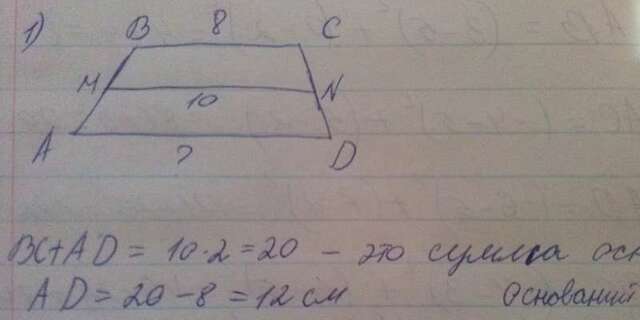 1) B 8 C
M 10 N
A ? D
BC+AD = 10·2=20 – это сумма осн
AD = 20-8 = 12 см оснований